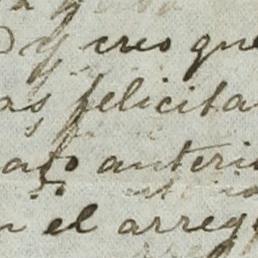 y creo que
as felicita
año anteri
n el arreg